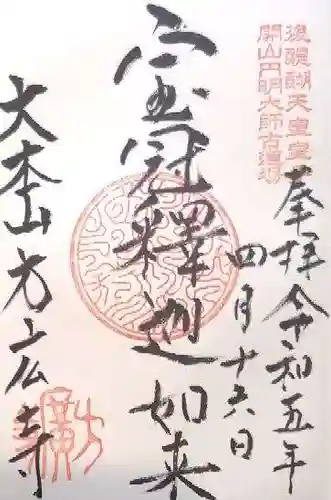 後醍醐天皇皇
開山円明大師古道場
奉拝 令和五年
四月十六日
宝冠釋迦如来
大本山方広寺
方廣